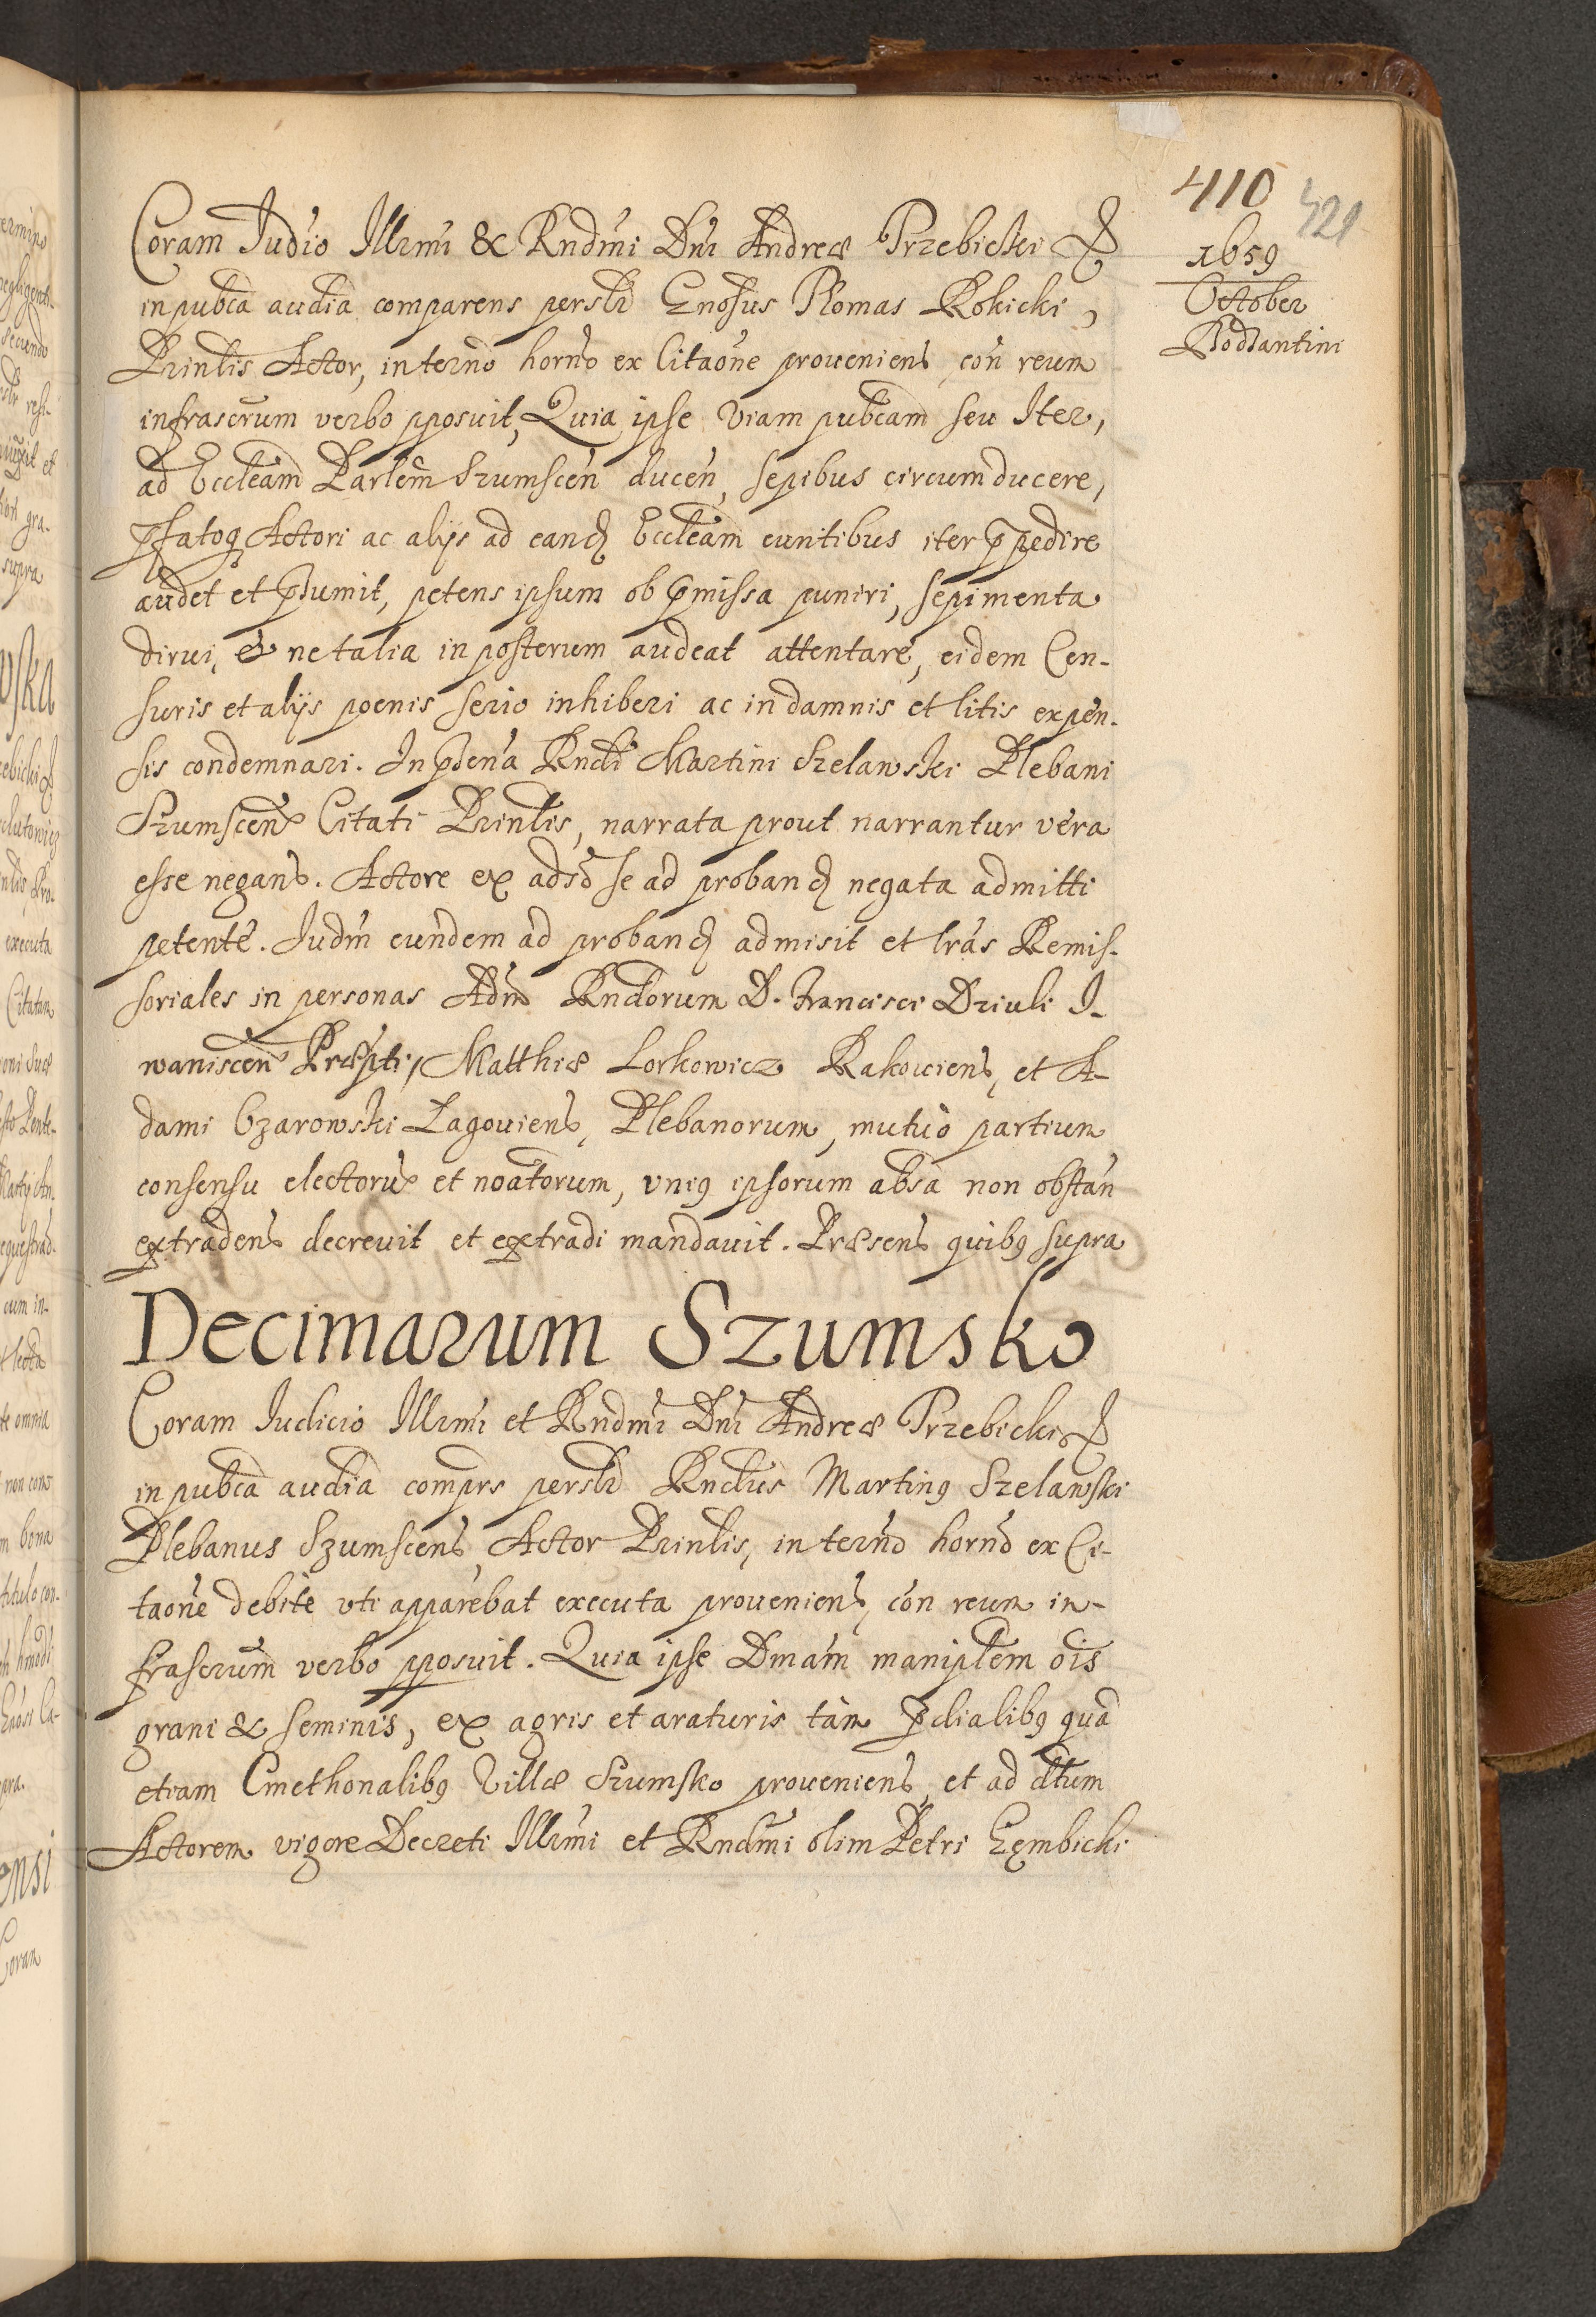 410
421
1659
October
Boddantini
Coram Judio Illrmi & Rndmi Dni Andreæ Trzebicki &
in pubca audia comparens persłr Gnosus Thomas Rokicki,
Prinlis Actor, in terno horno ex Citaone proueniens con reum
infrascrum verbo pposuit, Quia ipse viam pubcam seu Iter,
ad Eccleam Parlem Szumscen ducen, sepibus circumducere,
pfatoq Actori ac alijs ad eand Eccleam euntibus iter ppedire
audet et psumit, petens ipsum ob pmissa puniri, sepimenta
dirui, & ne talia in posterum audeat attentare, eidem Cen-
suris et alijs poenis serio inhiberi ac in damnis et litis expen-
sis condemnari. In pdena Rndi Martini Szelawski Plebani
Szumscen Citati Prinlis, narrata prout narrantur vera
esse negans. Actore ex adso se ad proband negata admitti
petente. Judm eundem ad proband admisit et lras Remis-
soriales in personas Adm Rndorum D. Francisci Dziuli I-
waniscen Præpti, Matthiæ Lorkowicz Rakouiens, et A-
dami Ozarowski Lagouiens, Plebanorum, mutuo partium
consensu electoru et noatorum, vniq ipsorum absa non obstan
extradens decreuit et extradi mandauit. Præsens quibq supra
Decimarum Szumsko
Coram Iudicio Illrmi et Rndmi Dni Andreæ Trzebicki &
in pubca audia comprs persłr Rndus Martinq Szelawski
Plebanus Szumscens Actor Prinlis, in terno horno ex Ci-
taone debite vti apparebat executa proueniens, con reum in-
frascrum verbo pposuit. Quia ipse Dmam maniplem ois
grani & seminis, ex agris et araturis tam pdialibq qua
etiam Cmethonalibq Villæ Szumsko proueniens, et ad dtum
Actorem vigore Decreti Illrmi et Rndmi olim Petri Gembicki